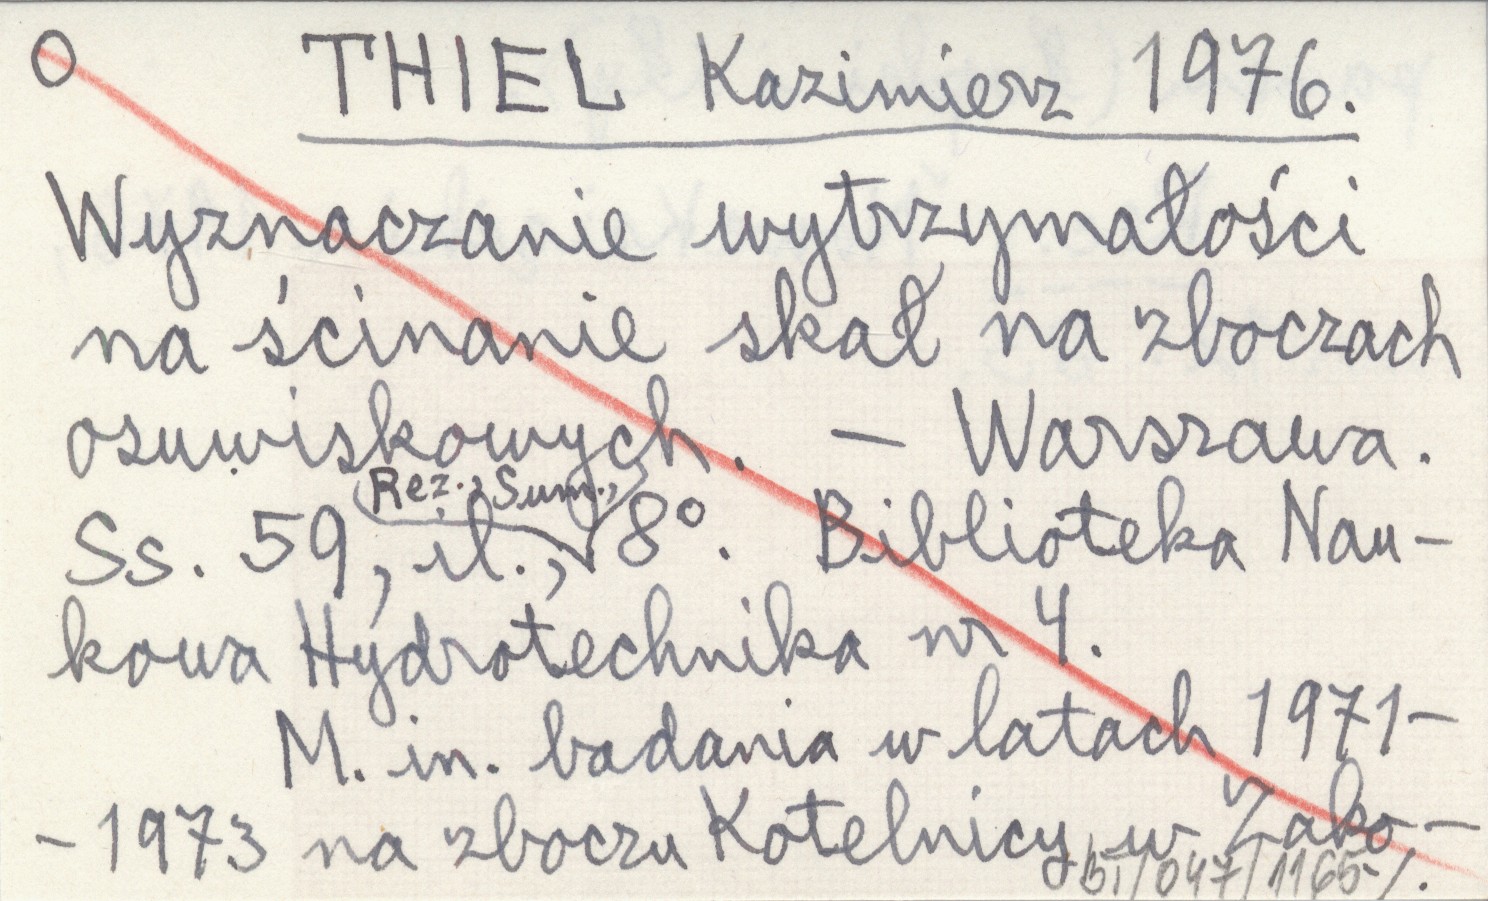 O THIEL Kazimierz 1976.
Wyznaczanie wytrzymałości
na ścinanie skał na zboczach
osuwiskowych. — Warszawa.
(Rez., Sum.,)
Ss. 59, il., 8°. Biblioteka Nau-
kowa Hydrotechnika nr 4.
M. in. badania w latach 1971-
-1973 na zboczu Kotelnicy w Zako-
bT/047/1165 ./.